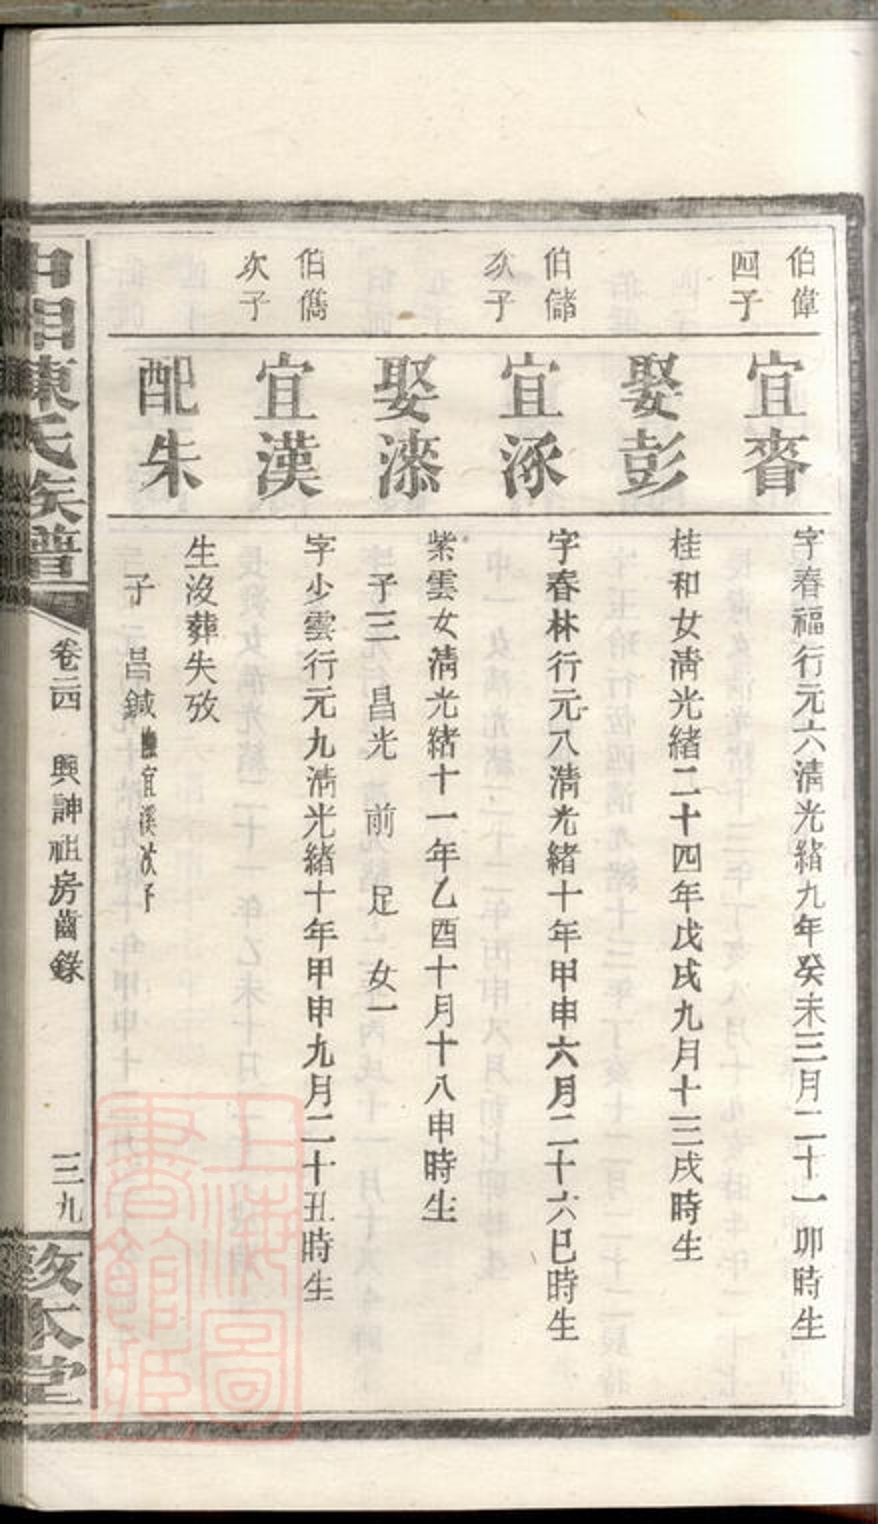 伯偉
四子
宜睿
字春福行元六清光緒九年癸未三月二十一卯時生
娶彭
桂和女清光緒二十四年戊戌九月十三戌時生
伯儲
次子
宜涿
字春林行元八清光緒十年甲申六月二十六巳時生
娶漆
紫雲女清光緒十一年乙酉十月十八申時生
子三 昌光 前 足 女一
伯儁
次子
宜漢
字少雲行元九清光緒十年甲申九月二十丑時生
配朱
生沒葬失攷
子 昌鍼 宜溪次子
中湘陳氏族譜
卷二四 興訷祖房齒錄
三九
敦本堂
上海圖
書館藏